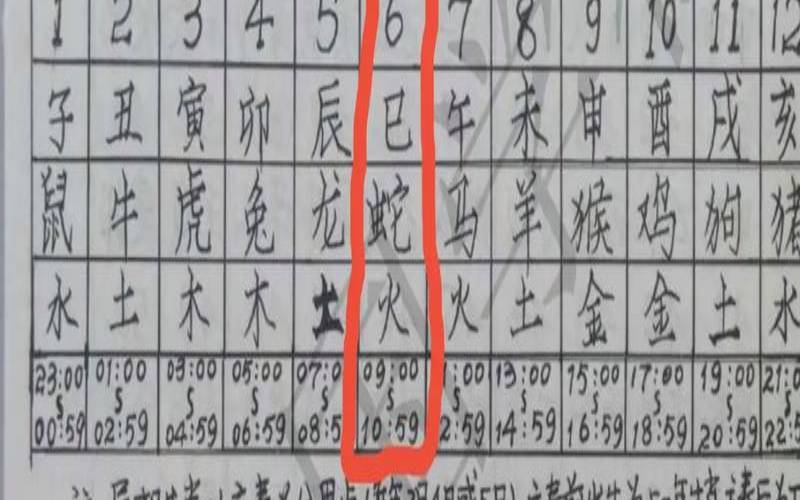 1 2 3 4 5 6 7 8 9 10 11 12
子 丑 寅 卯 辰 巳 午 未 申 酉 戌 亥
鼠 牛 虎 兔 龙 蛇 马 羊 猴 鸡 狗 猪
水 土 木 木 土 火 火 土 金 金 土 水
23:00 01:00 03:00 05:00 07:0 09:00 1:00 13:00 15:00 17:00 19:00 21:0
00:59 02:59 04:59 06:59 08:5 10:59 2:59 14:59 16:59 18:59 20:59 22:5